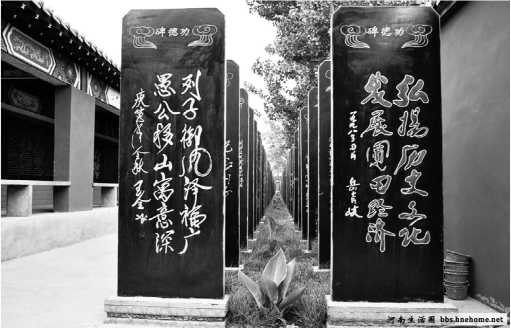 功德碑
列子御风泽福广
愚公移山寓意深
功德碑
弘揚历史文化
發展圃田经济
河南生活圈 bbs.hnehome.net